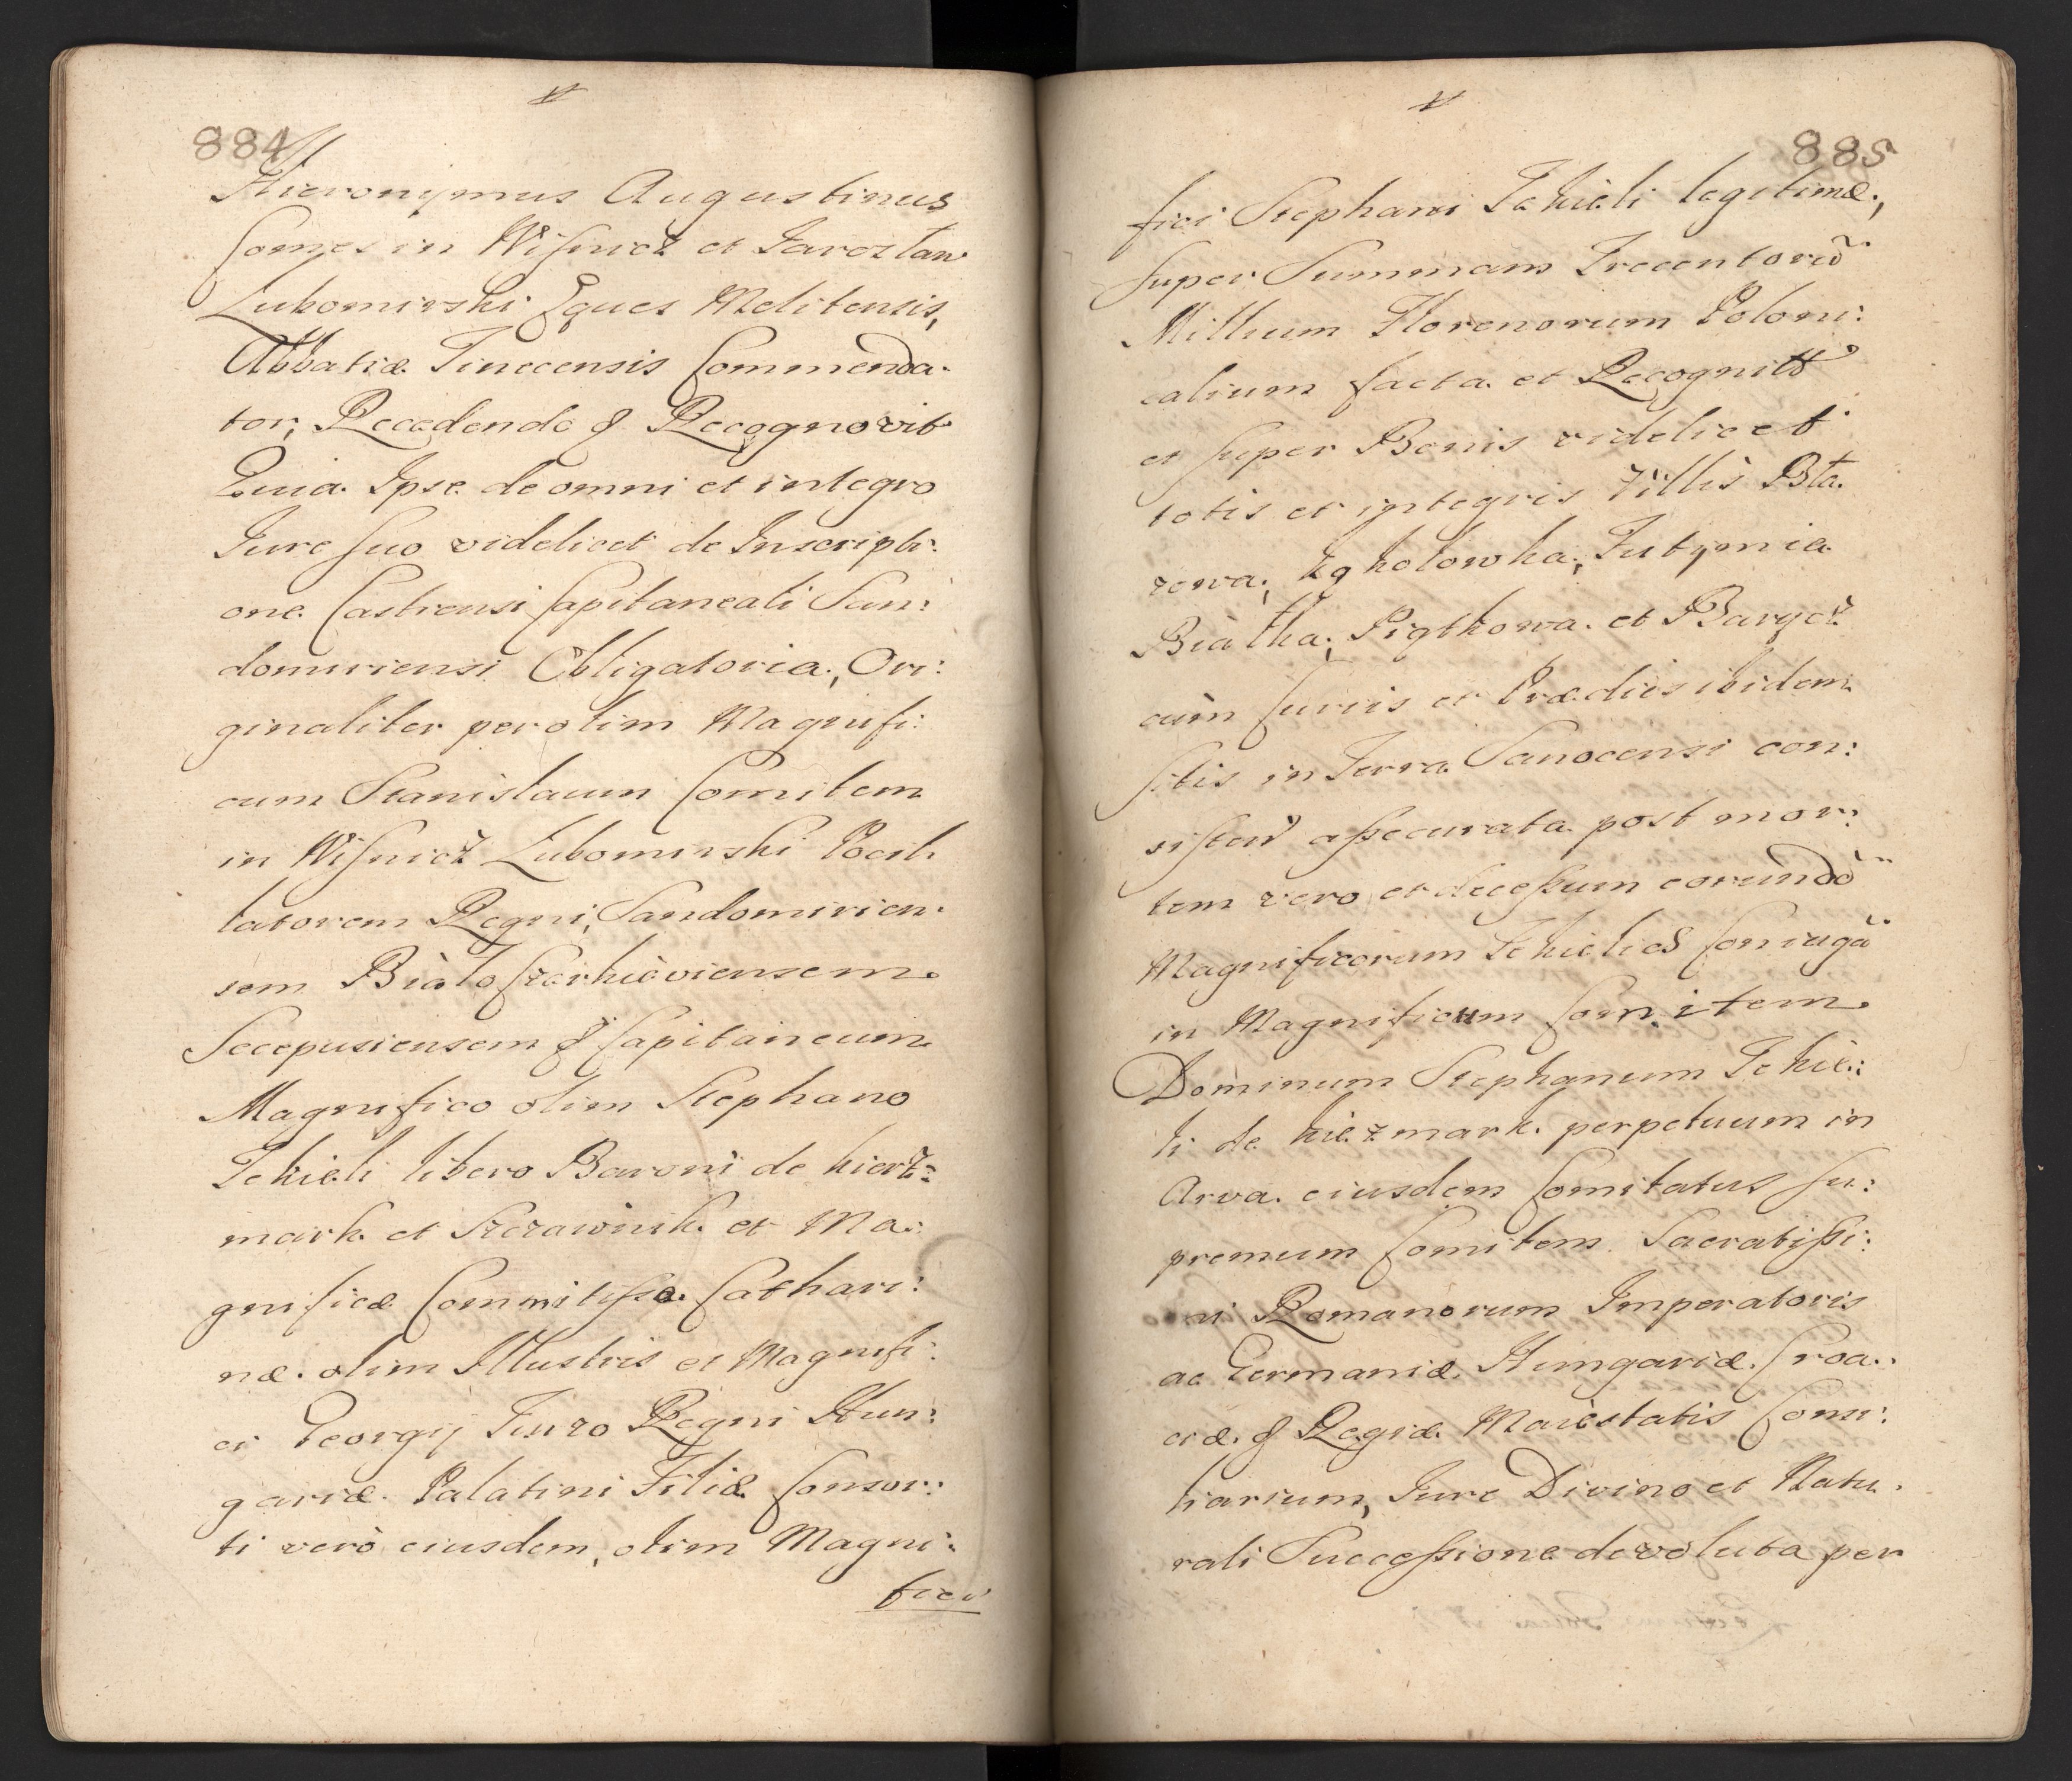 884
Hieronymus Augustinus
Comes in Wisnicz et Jaroslaw
Lubomirski Eques Melitensis,
Abbatiæ Tinecensis Commenda.
tor, Recedendo & Recognovit
Quia Ipse de omni et integro
Jure suo videlicet de Inscripti:
one Castrensi Capitaneali San:
domiriensi Obligatoria, Ori:
ginaliter per olim Magnifi:
cum Stanislaum Comitem
in Wisnicz Lubomirski Pocil:
latorem Regni, Sandomirien.
sem Biało Cerkieviensem
Scepusiensem & Capitaneum
Magnifico olim Stephano
Tekieli libero Baroni de Kierz:
mark et Szczawnik et Ma:
gnificæ Commitissæ Cathari:
næ olim Illustris et Magnifi:
ci Georgij Turzo Regni Hun:
gariæ Palatini Filiæ Consor:
ti verò eiusdem olim Magni:
fici
885
fici Stephani Tekieli legitimæ,
super Summam Trecentorũ
Millium Florenorum Poloni:
calium facta et Recognitt
et super Bonis videlicet
totis et integris Villis Bła
zowa, Kąkolowka, Futyma
Białka, Piątkowa et Barycz
cum Curiis et Prædiis ibidem
sitis in Terra Sanocensi con:
sisten assecurata post mor:
tem vero et decessum eorundd
Magnificorum Tekielied Coniugũ
in Magnificum Comitem
Dominum Stephanum Tekie:
li de Kiezmark perpetuum in
Arva eiusdem Comitatus Su:
premum Comitem Sacratissi:
mi Romanorum Imperatoris
ac Germaniæ Hungariæ Croa:
ciæ & Regiæ Maiestatis Consi:
liarium, Jure Divino et Natu.
rali Successione devoluta per